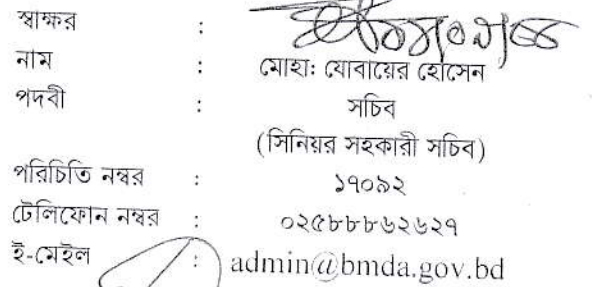 স্বাক্ষর :
নাম : মোহাঃ যোবায়ের হোসেন
পদবী : সচিব
(সিনিয়র সহকারী সচিব)
পরিচিতি নম্বর : ১৭০৯২
টেলিফোন নম্বর : ০২৫৮৮৮৬২৬২৭
ই-মেইল : admin@bmda.gov.bd